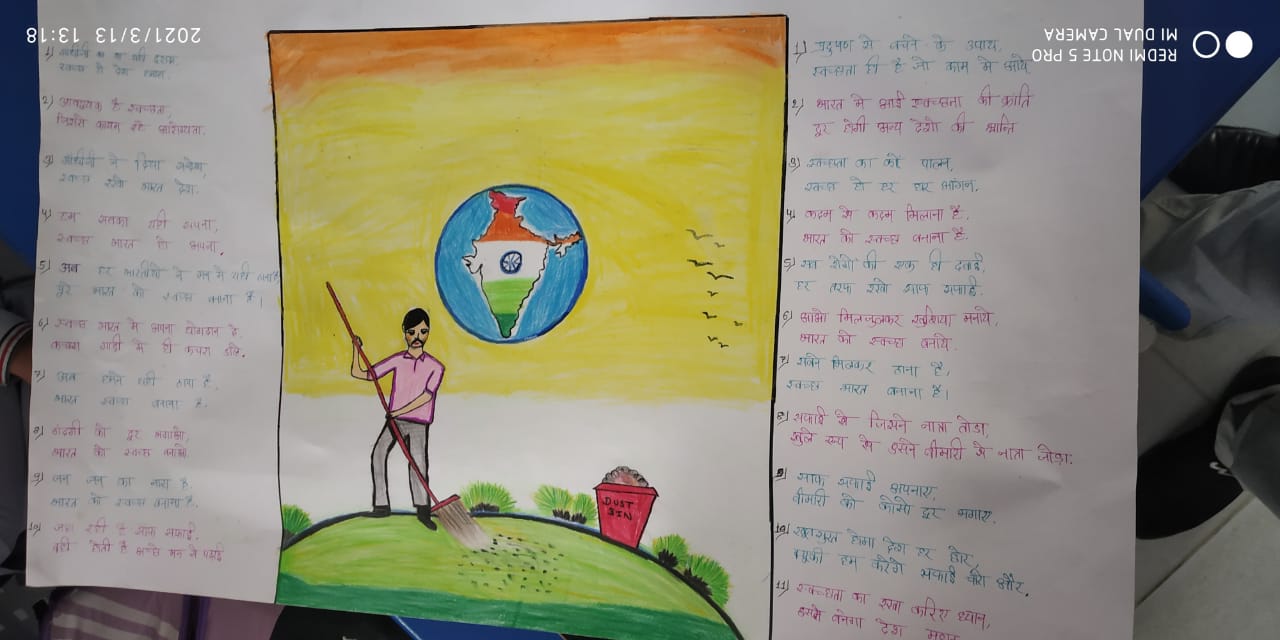 2021/3/13 13:18
REDMI NOTE 5 PRO
MI DUAL CAMERA
1) गांधीजी का था यही
स्वच्छ हो देश
2) आवश्यक है स्वच्छता,
3) गांधीजी ने दिया संदेश,
स्वच्छ रखो भारत देश.
4) हम सबका यही सपना,
स्वच्छ भारत हो अपना.
5) अब हर भारतीयो ने मन मे यही ठाना है
पुरे भारत को स्वच्छ बनाना है।
6) स्वच्छ भारत मे अपना योगदान दे.
कचरा गाडी मे ही कचरा डाले.
7) अब हमने यही ठाना है.
भारत स्वच्छ बनाना है.
8) गंदगी को दूर भगाओ,
भारत को स्वच्छ बनाओ
9) जन जन का नारा है.
भारत को स्वच्छ बनाना है.
10) जहा रहती है साफ सफाई.
वही होती है अच्छे मन से पढाई
DUST
BIN
1) प्रदुषण से बचने के उपाय,
स्वच्छता ही है जो काम मे आये
2) भारत मे आई स्वच्छता की क्रांति
दूर होगी अन्य देशो की भ्रान्ति
3) स्वच्छता का करे पालन,
स्वच्छ हो हर घर आंगन.
4) कदम से कदम मिलाना है.
भारत को स्वच्छ बनाना है.
5) सब रोगो की एक ही दवाई,
हर तरफ रखो साफ सफाई.
6) आओ मिलजुलकर खुशिया मनाये,
भारत को स्वच्छ बनाये.
7) सबने मिलकर ठाना है,
स्वच्छ भारत बनाना है।
8) सफाई से जिसने नाता तोडा,
खुले रूप से उसने बीमारी से नाता जोडा.
9) साफ सफाई अपनाए,
बीमारी को कोसो दूर भगाए.
10) खुबसुरत होगा देश हर छोर,
क्युकी हम करेंगे सफाई चारो और.
11) स्वच्छता का रखा करिए ध्यान,
इससे बनेगा देश महान